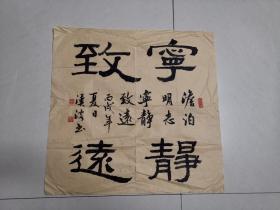 寧靜
致遠
澹泊
明志
寧靜
致遠
丙戌年
夏日